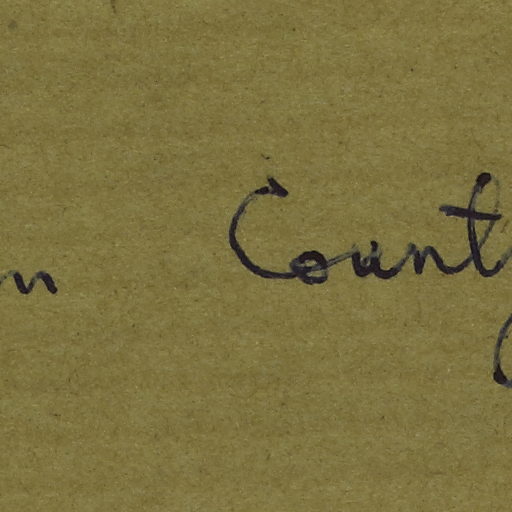 n County